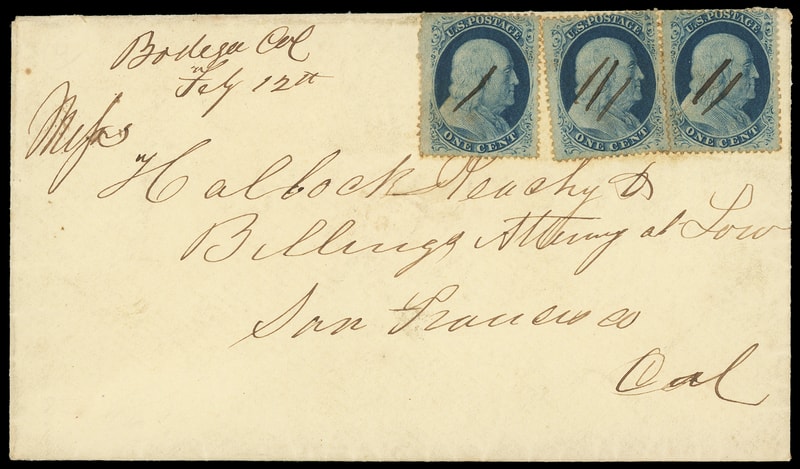 Bodega Cal
Feby 12th
U.S. POSTAGE
ONE CENT
U.S. POSTAGE
ONE CENT
U.S. POSTAGE
ONE CENT
Mess
Hallock Peachy &
Billings Attorny at Low
San Francisco
Cal